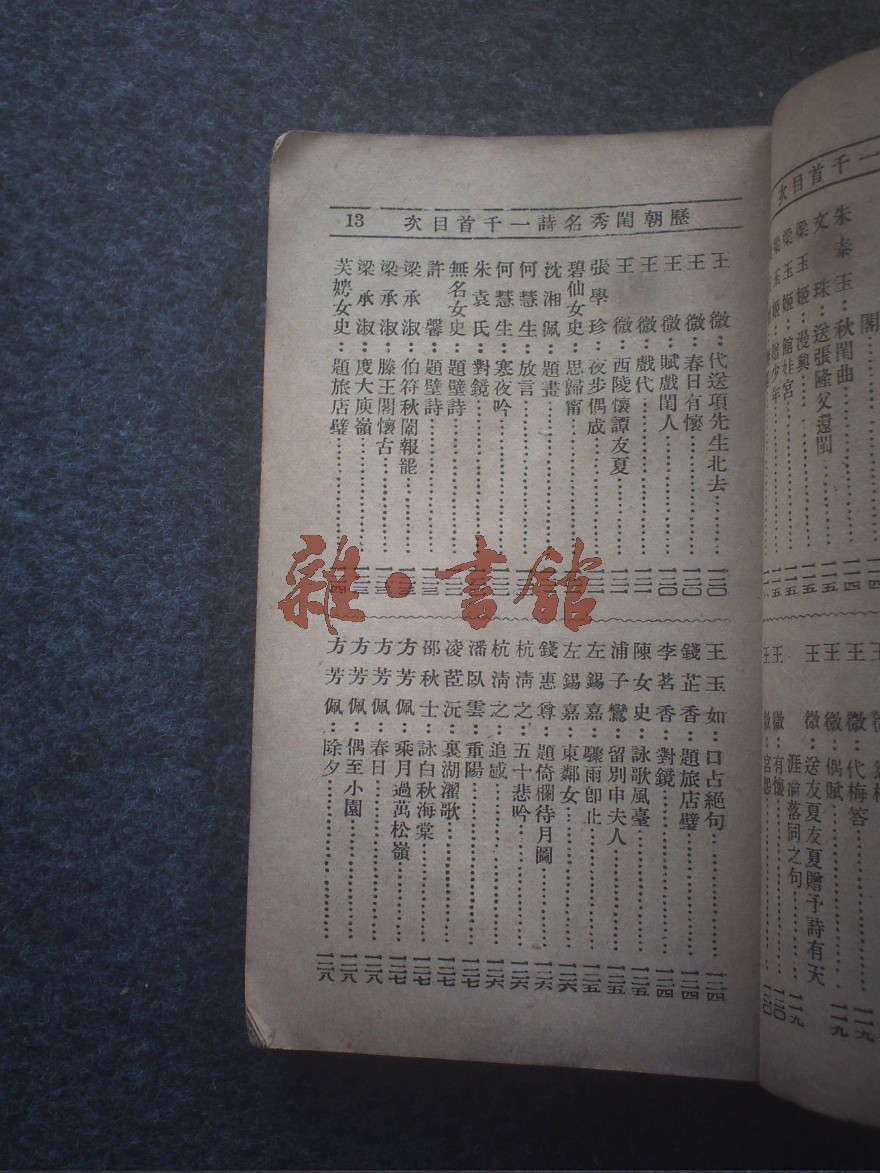 歷朝閨秀名詩一千首目次 13
王微：代送項先生北去 一二〇
王微：春日有懷 一二〇
王微：賦戲閨人 一二〇
王微：戲代 一二一
王微：西陵懷譚友夏 一二一
張學珍：夜步偶成
碧仙女史：思歸甯
沈湘佩：題畫
何慧生：放言
何慧生：寒夜吟
朱袁氏：對鏡
無名女史：題壁詩
許馨：題壁詩
梁承淑：伯符秋闈報罷
梁承淑：滕王閣懷古
梁承淑：度大庾嶺
芙娉女史：題旅店壁
王玉如：口占絕句 一二四
錢芷香：題旅店壁 一二四
李茗香：對鏡 一二四
陳女史：詠歌風臺 一二五
浦子鸞：留別申夫人 一二五
左錫嘉：驟雨卽止 一二五
左錫嘉：東鄰女 一二六
錢惠尊：題倚欄待月圖 一二六
杭清之：五十悲吟 一二六
杭清之：追感 一二六
潘臥雲：重陽 一二七
凌茞沅：裏湖濯歌 一二七
邵秋士：詠白秋海棠 一二七
方芳佩：乘月過萬松嶺 一二七
方芳佩：春日 一二八
方芳佩：偶至小園 一二八
方芳佩：除夕 一二八
首千一
目次
閣
朱泰玉：秋閨曲
文珠：送張隆父還閩
梁玉姬：漫興
梁玉姬：館娃宮
玉姬：贈少年
微：代梅答
王微：偶賦 一一九
王微：送友夏友夏贈予詩有天
涯淪落同之句 一一九
王微：有懷 一二〇
王微：宮怨 一二〇
雜·書館